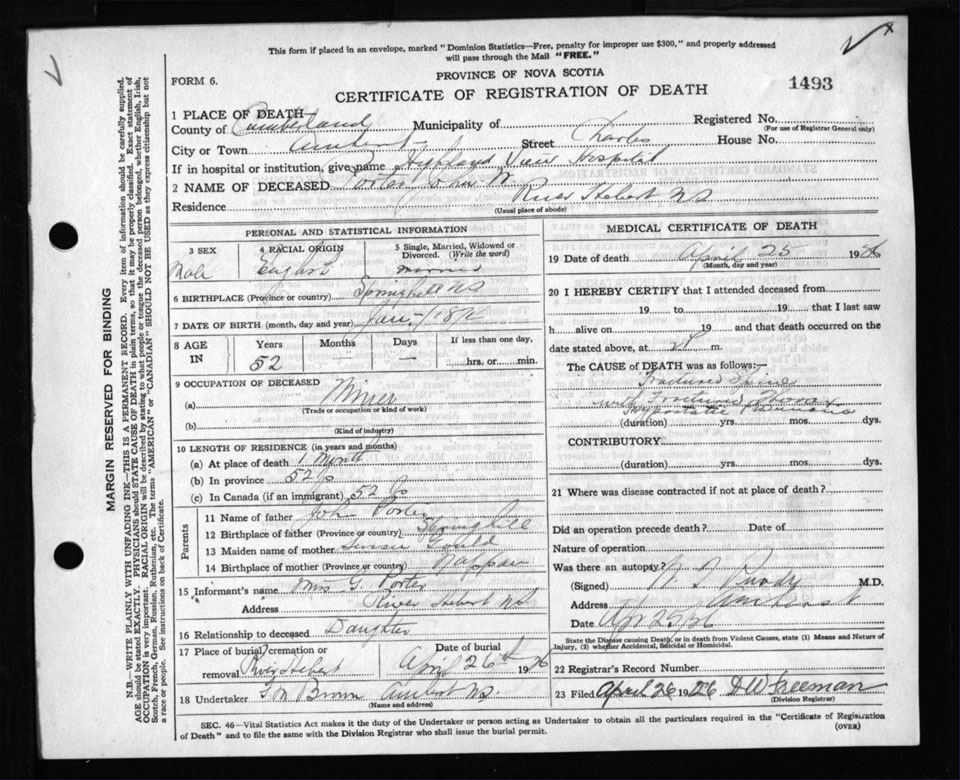 This form if placed in an envelope, marked "Dominion Statistics—Free, penalty for improper use $300," and properly addressed
will pass through the Mail "FREE."
FORM 6.
PROVINCE OF NOVA SCOTIA
CERTIFICATE OF REGISTRATION OF DEATH
1493
1 PLACE OF DEATH—
County of Cumberland Municipality of Registered No.
(For use of Registrar General only)
City or Town Amherst Street Charles House No.
If in hospital or institution, give name Highland View Hospital
2 NAME OF DECEASED Porter John W
Residence River Hebert NS
(Usual place of abode)
PERSONAL AND STATISTICAL INFORMATION
3 SEX 4 RACIAL ORIGIN 5 Single, Married, Widowed or Divorced. (Write the word)
Male English Married
6 BIRTHPLACE (Province or country) Springhill NS
7 DATE OF BIRTH (month, day and year) Jan
8 AGE IN Years Months Days If less than one day,
52 — — hrs. or min.
9 OCCUPATION OF DECEASED
(a) Miner
(Trade or occupation or kind of work)
(b)
(Kind of industry)
10 LENGTH OF RESIDENCE (in years and months)
(a) At place of death 1 Month
(b) In province 52 ys
(c) In Canada (if an immigrant) 52 ys
Parents
11 Name of father John Porter
12 Birthplace of father (Province or country) Springhill
13 Maiden name of mother Gould
14 Birthplace of mother (Province or country) Nappan
15 Informant's name Mrs G. Porter
Address River Hebert NS
16 Relationship to deceased Daughter
17 Place of burial, cremation or removal River Hebert Date of burial April 26th 1926
18 Undertaker Brown Amherst NS
(Name and address)
MEDICAL CERTIFICATE OF DEATH
19 Date of death April 25 1926
(Month, day and year)
20 I HEREBY CERTIFY that I attended deceased from
19 to 19 that I last saw
h alive on 19 and that death occurred on the
date stated above, at m.
The CAUSE OF DEATH was as follows:—
Fractured Spine
with Fractured
Hypostatic Pneumonia
(duration) yrs. mos. dys.
CONTRIBUTORY
(duration) yrs. mos. dys.
21 Where was disease contracted if not at place of death?
Did an operation precede death? Date of
Nature of operation
Was there an autopsy?
(Signed) Purdy M.D.
Address Amherst
Date Apr 25/26
State the Disease causing Death, or in death from Violent Causes, state (1) Means and Nature of
Injury, (2) whether Accidental, Suicidal or Homicidal.
22 Registrar's Record Number
23 Filed April 26 1926 DW Freeman
(Division Registrar)
SEC. 46—Vital Statistics Act makes it the duty of the Undertaker or person acting as Undertaker to obtain all the particulars required in the "Certificate of Registration
of Death" and to file the same with the Division Registrar who shall issue the burial permit.
(OVER)
MARGIN RESERVED FOR BINDING
N.B.—WRITE PLAINLY WITH UNFADING INK—THIS IS A PERMANENT RECORD. Every item of information should be carefully supplied.
AGE should be stated EXACTLY. PHYSICIANS should STATE CAUSE OF DEATH in plain terms, so that it may be properly classified. Exact statement of
OCCUPATION is very important. RACIAL ORIGIN will be described by stating to what people or tongue the deceased person belonged, whether English, Irish,
Scotch, French, German, Russian, Ruthenian, etc. The terms "AMERICAN" or "CANADIAN" SHOULD NOT BE USED as they express citizenship but not
a race or people. See instructions on back of Certificate.